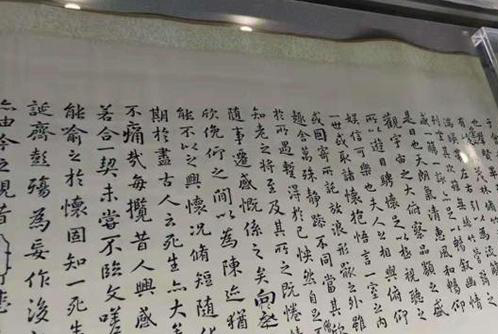 一觴一詠亦足以暢敘幽情
是日也天朗氣清惠風和暢仰
觀宇宙之大俯察品類之盛
所以遊目騁懷足以極視聽之
娛信可樂也夫人之相與俯仰
一世或取諸懷抱悟言一室之內
或因寄所託放浪形骸之外雖
趣舍萬殊靜躁不同當其
於所遇蹔得於己怏然自足
知老之將至及其所之既惓情
隨事遷感慨係之矣向之所
欣俛仰之間以為陳迹猶
能不以之興懷況脩短隨化
期於盡古人云死生亦大矣
不痛哉每攬昔人興感
若合一契未嘗不臨文嗟
能喻之於懷固知一死生
誕齊彭殤為妄作後
亦由今之視昔悲